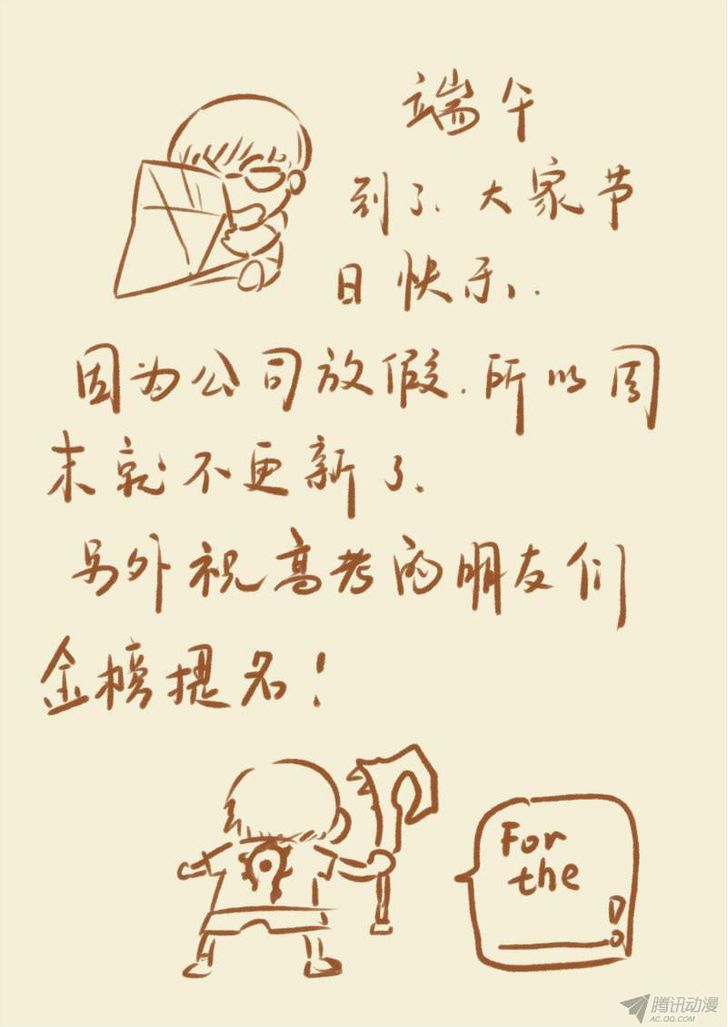 端午
到了、大家节
日快乐、.
因为公司放假.所以周
末就不更新了、
另外祝高考的朋友们
金榜提名!
For
the
Do
腾讯动漫
AC.QQ.COM